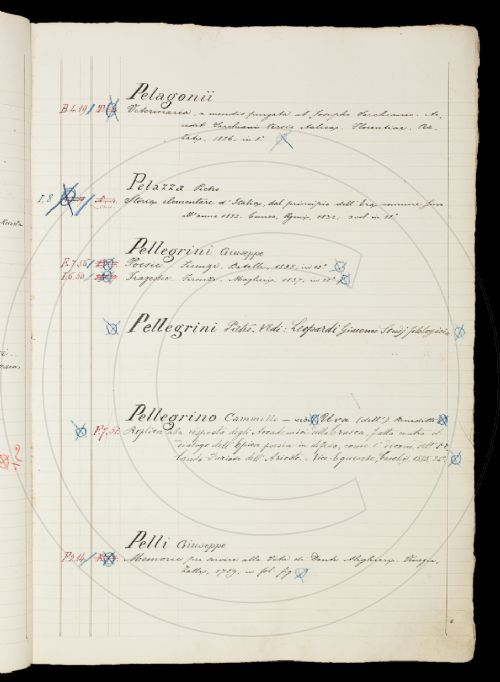 Pelagonii
B.4.19 / Veterinaria, a mendis purgata ab Josepho Sarchiano. Ac-
cedit Sarchiani versio Italica. Florentiae,
1826. in 8°
Pelazza Pietro
I.8 Storia elementare d'Italia, dal principio dell'era comune fino
all'anno 1832. Cuneo, 1832. 2 vol. in 12°
Pellegrini Giuseppe
Poesie. Firenze, Batelli, in 12°
Tragedie. Firenze, 1837. in 12°
Pellegrini Pietro. Vedi: Leopardi Giacomo Studj filologici
Pellegrino Cammillo — vedi Uva (dell') Benedetto
Replica alla risposta degli Accademici della Crusca, fatta contro il
dialogo dell'Epica poesia in difesa, come e' dicono, dell' Or-
lando Furioso dell'Ariosto. Vico Equense, 1585.
Pelli Giuseppe
Memorie per servire alla Vita di Dante Alighieri. Venezia,
Zatta, 1759. in fol. fig.